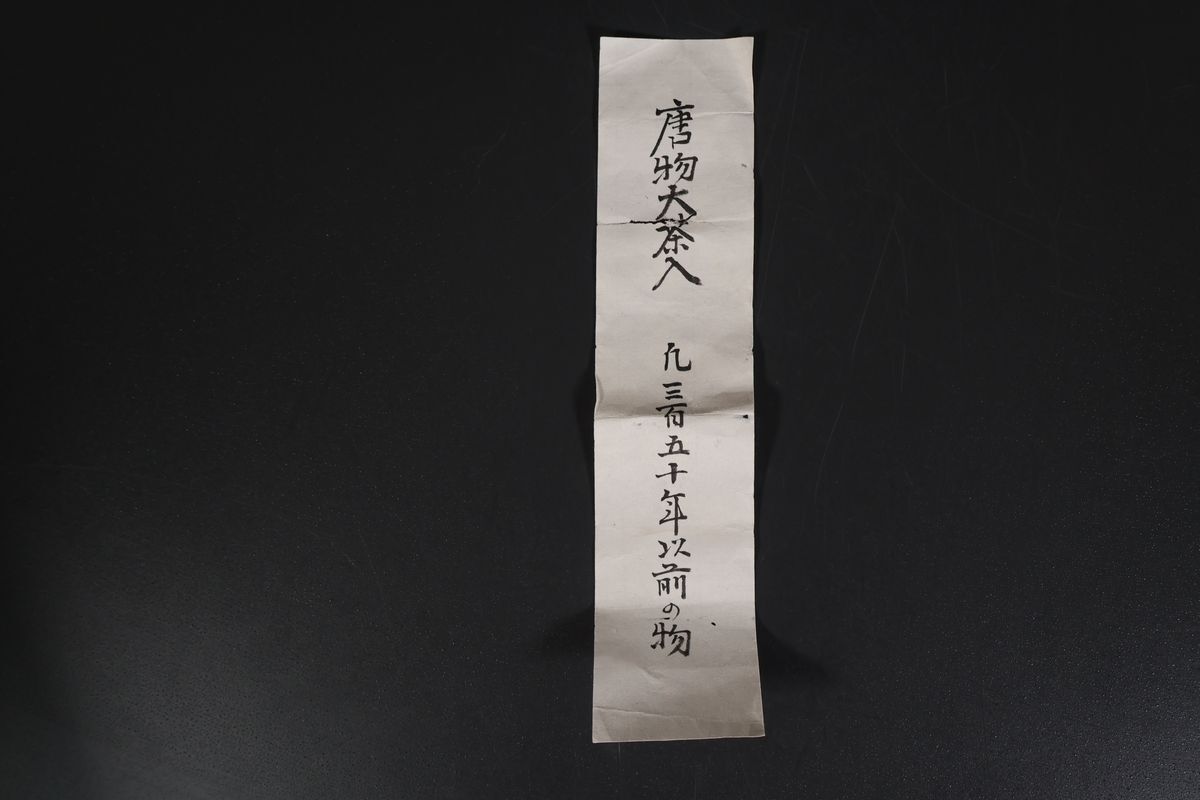 唐物大茶入　凡三百五十年以前の物